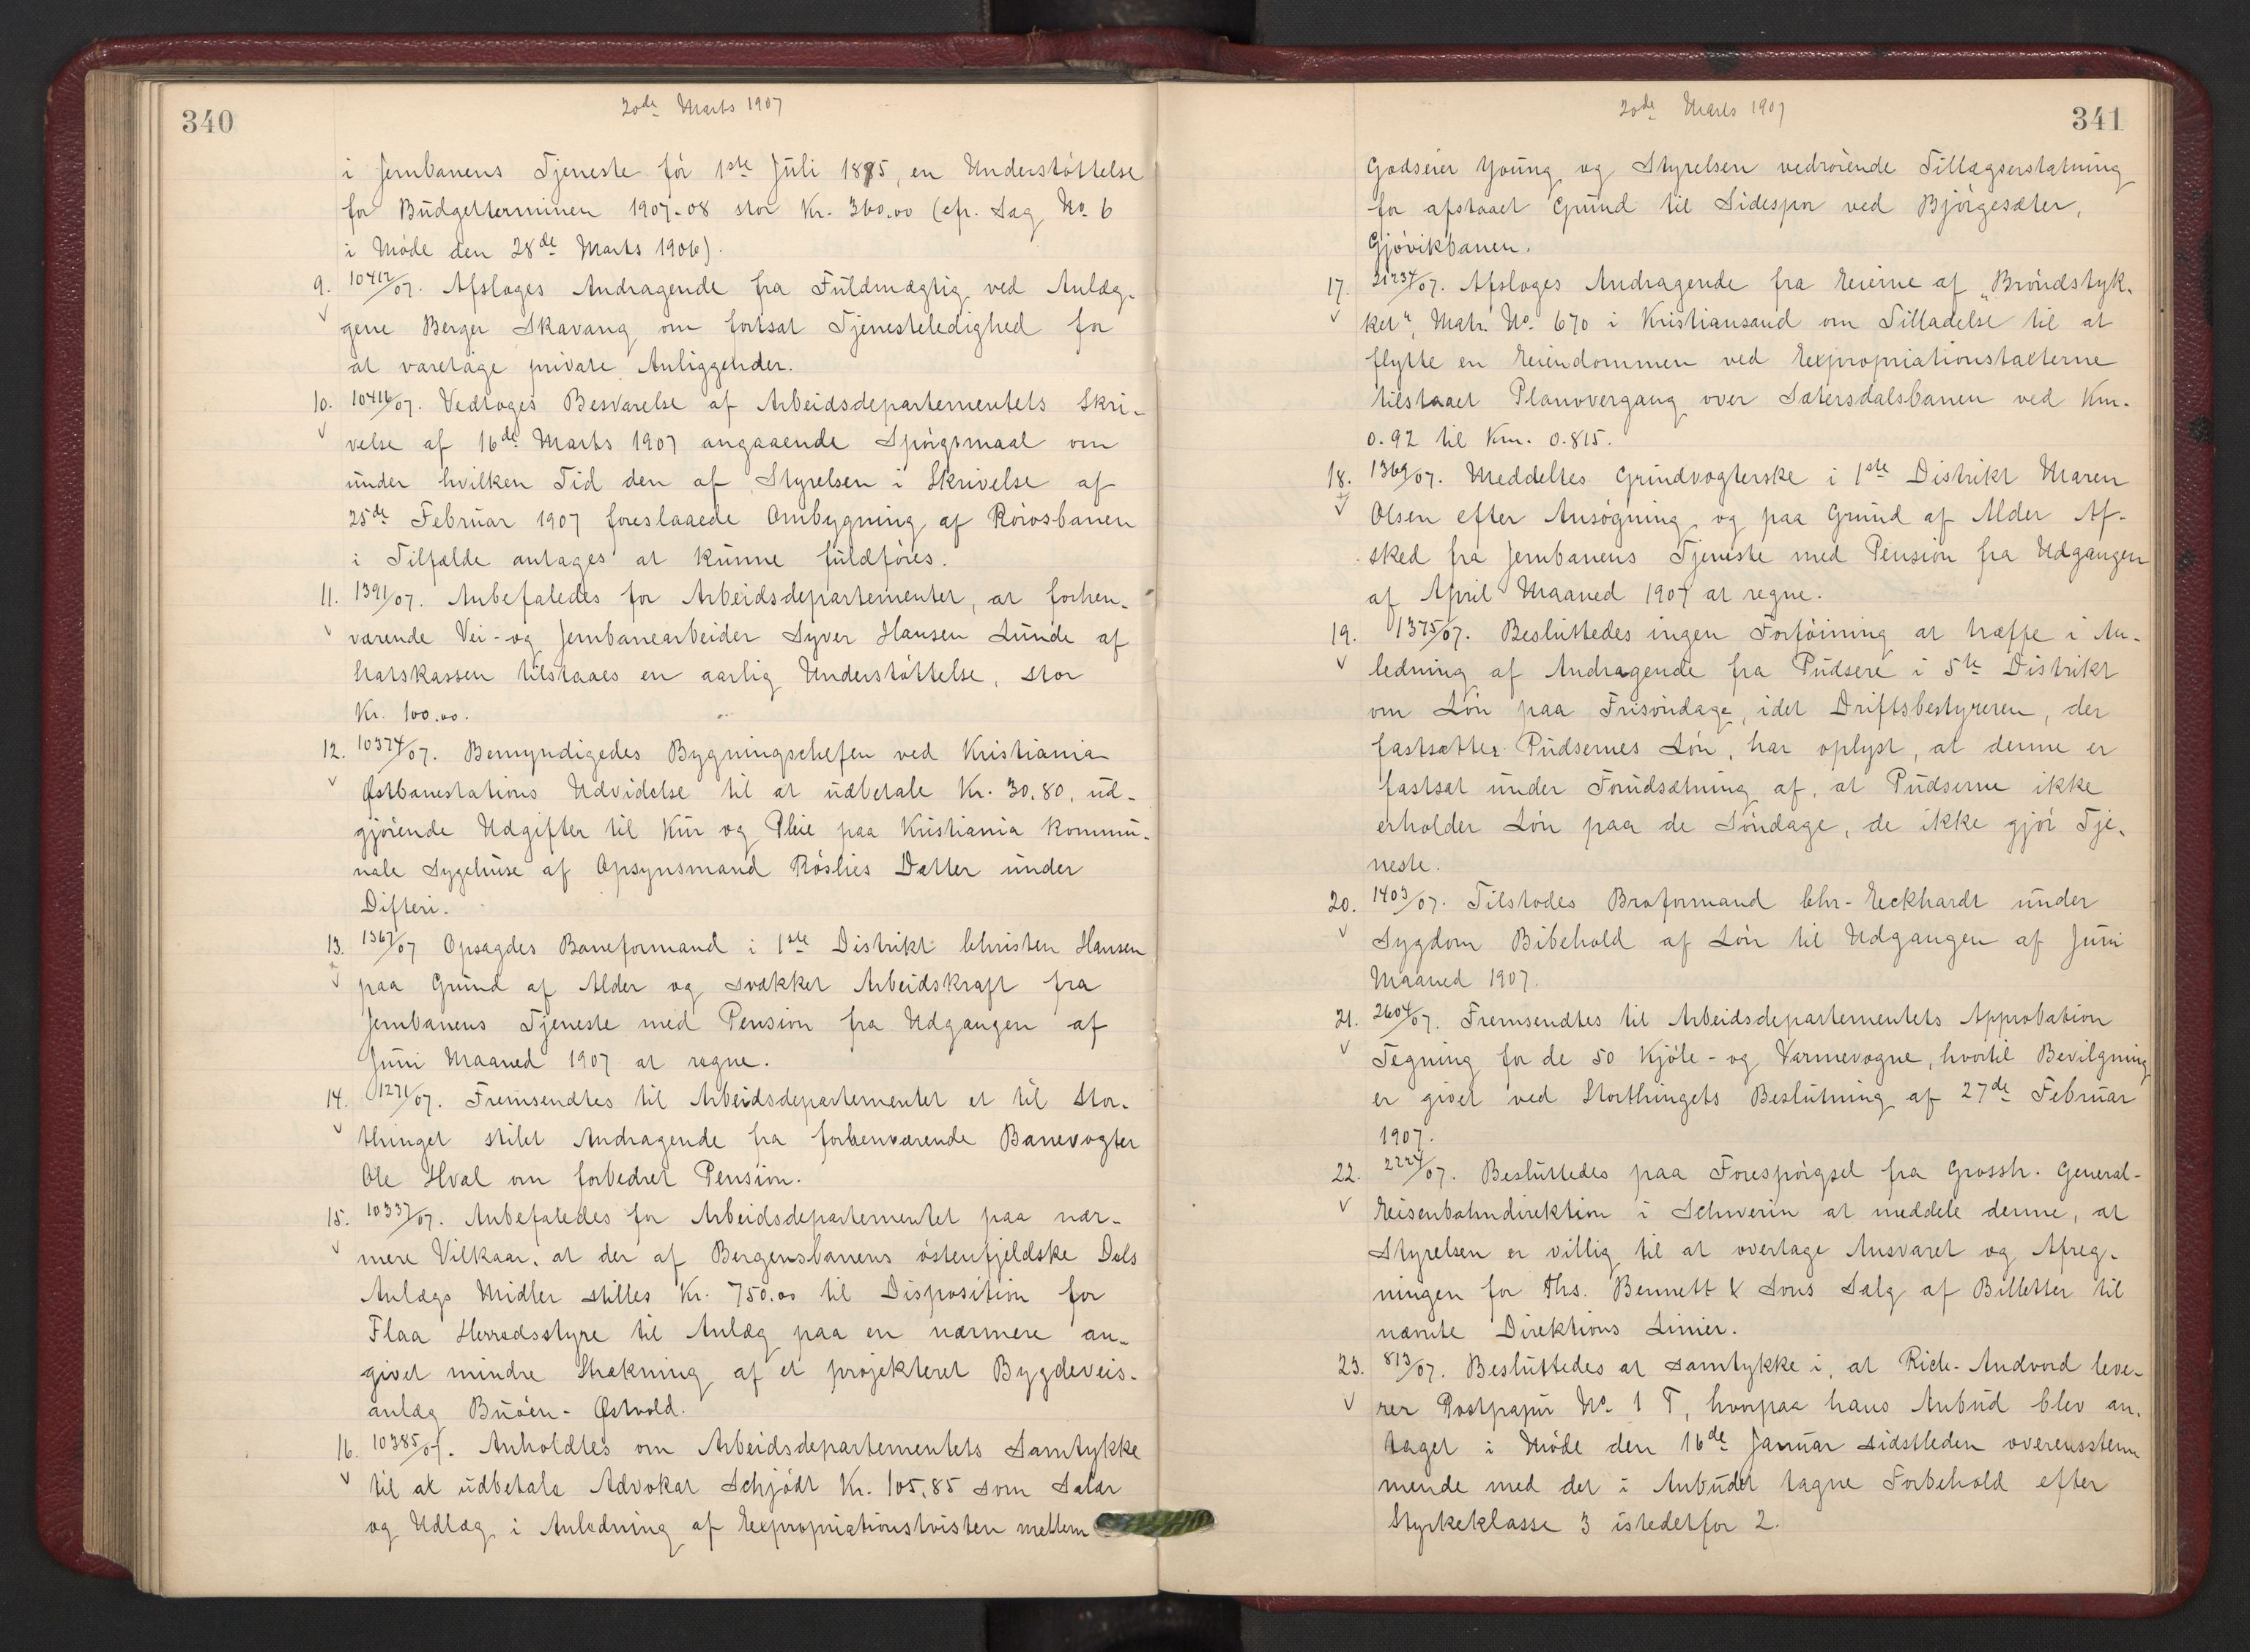 340
20de Marts 1907
i Jernbanens Tjeneste før 1ste Juli 1895, en Understøttelse
for Budgetterminen 1907-08 stor Kr. 360.00 (cfr. Sag No. 6
i Møde den 28de Marts 1906).
9. 10412/07. Afsloges Andragende fra Fuldmægtig ved Anlæg-
gene Berger Skavang om fortsat Tjenesteledighed for
at varetage private Anliggender.
10. 10416/07. Vedtoges Besvarelse af Arbeidsdepartementets Skri-
velse af 16de Marts 1907 angaaende Spørgsmaal om
under hvilken Tid den af Styrelsen i Skrivelse af
25de Februar 1907 foreslaaede Ombygning af Rørosbanen
i Tilfælde antages at kunne fuldføres.
11. 1391/07. Anbefaledes for Arbeidsdepartementet, at forhen-
værende Vei- og Jernbanearbeider Syver Hansen Lunde af
Statskassen tilstaaes en aarlig Understøttelse, stor
Kr. 100.00.
12. 10374/07. Bemyndigedes Bygningschefen ved Kristiania
Østbanestations Udvidelse til at udbetale Kr. 30.80, ud-
gjørende Udgifter til Kur og Pleie paa Kristiania kommu-
nale Sygehuse af Opsynsmand Røslies Datter under
Difteri.
13. 1367/07 Opsagdes Baneformand i 1ste Distrikt Christen Hansen
paa Grund af Alder og svækket Arbeidskraft fra
Jernbanens Tjeneste med Pension fra Udgangen af
Juni Maaned 1907 at regne.
14. 1271/07. Fremsendtes til Arbeidsdepartementet et til Stor-
thinget stilet Andragende fra forhenværende Banevogter
Ole Hval om forbedret Pension.
15. 10337/07. Anbefaledes for Arbeidsdepartementet paa nær-
mere Vilkaar, at der af Bergensbanens østenfjeldske Dels
Anlægs Midler stilles Kr. 750.00 til Disposition for
Flaa Herredsstyre til Anlæg paa en nærmere an-
givet mindre Strækning af et projekteret Bygdeveis-
anlæg Buøen - Østvold.
16. 10385/07. Anholdtes om Arbeidsdepartementets Samtykke
til at udbetale Advokat Schjødt Kr. 105.85 som Salær
og Udlæg i Anledning af Expropriationstvisten mellem
341
20de Marts 1907
Godseier Young og Styrelsen vedrørende Tillægserstatning
for afstaaet Grund til Sidespor ved Bjørgesæter,
Gjøvikbanen.
17. 21234/07. Afsloges Andragende fra Eierne af "Brøndstyk-
ket", Matr. No. 670 i Kristiansand om Tilladelse til at
flytte en Eiendommen ved Expropriationstaxterne
tilstaaet Planovergang over Sætersdalsbanen ved Km.
0.92 til Km. 0.815.
18. 1369/07. Meddeltes Grindvogterske i 1ste Distrikt Maren
Olsen efter Ansøgning og paa Grund af Alder Af-
sked fra Jernbanens Tjeneste med Pension fra Udgangen
af April Maaned 1907 at regne.
19. 1375/07. Besluttedes ingen Forføining at træffe i An-
ledning af Andragende fra Pudsere i 5te Distrikt
om Løn paa Frisøndage, idet Driftsbestyreren, der
fastsætter Pudsernes Løn, har oplyst, at denne er
fastsat under Forudsætning af, at Pudserne ikke
erholder Løn paa de Søndage, de ikke gjør Tje-
neste.
20. 1403/07. Tilstodes Broformand Chr. Eeckhardt under
Sygdom Bibehold af Løn til Udgangen af Juni
Maaned 1907.
21. 2604/07. Fremsendtes til Arbeidsdepartementets Approbation
Tegning for de 50 Kjøle- og Varmevogne, hvortil Bevilgning
er givet ved Storthingets Beslutning af 27de Februar
1907.
22. 2224/07. Besluttedes paa Forespørgsel fra Grossh. General-
Eisenbahndirektion i Schwerin at meddele denne, at
Styrelsen er villig til at overtage Ansvaret og Afreg-
ningen for Ths. Bennett & Sons Salg af Billetter til
nævnte Direktions Linier.
23. 813/07. Besluttedes at samtykke i, at Rich. Andvord leve-
rer Postpapir No. 1 T, hvorpaa hans Anbud blev an-
taget i Møde den 16de Januar sidstleden overensstem
mende med det i Anbudet tagne Forbehold efter
Styrkeklasse 3 istedetfor 2.